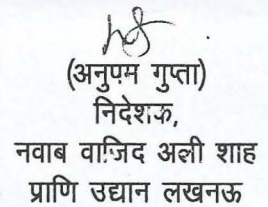 (अनुपम गुप्ता)
निदेशक,
नवाब वाजिद अली शाह
प्राणि उद्यान लखनऊ